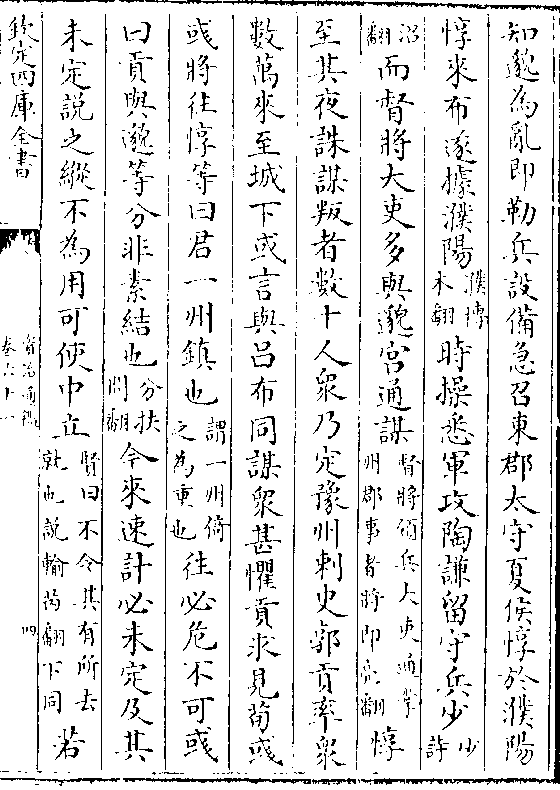 知邈為亂即勒兵設備急召東郡太守夏侯惇於濮陽
惇來布遂據濮陽濮博木翻時操悉軍攻陶謙留守兵少少詩
沼翻而督將大吏多與邈宫通謀督將領兵大吏通掌州郡事者將即亮翻惇
至其夜誅謀叛者數十人衆乃定豫州刺史郭貢率衆
數萬來至城下或言與吕布同謀衆甚懼貢求見荀彧
彧將往惇等曰君一州鎮也謂一州倚之為重也往必危不可彧
曰貢與邈等分非素結也分扶問翻今來速計必未定及其
未定說之縱不為用可使中立賢曰不令其有所去就也說輸芮翻下同若
欽定四庫全書
資治通鑑
卷六十一
四